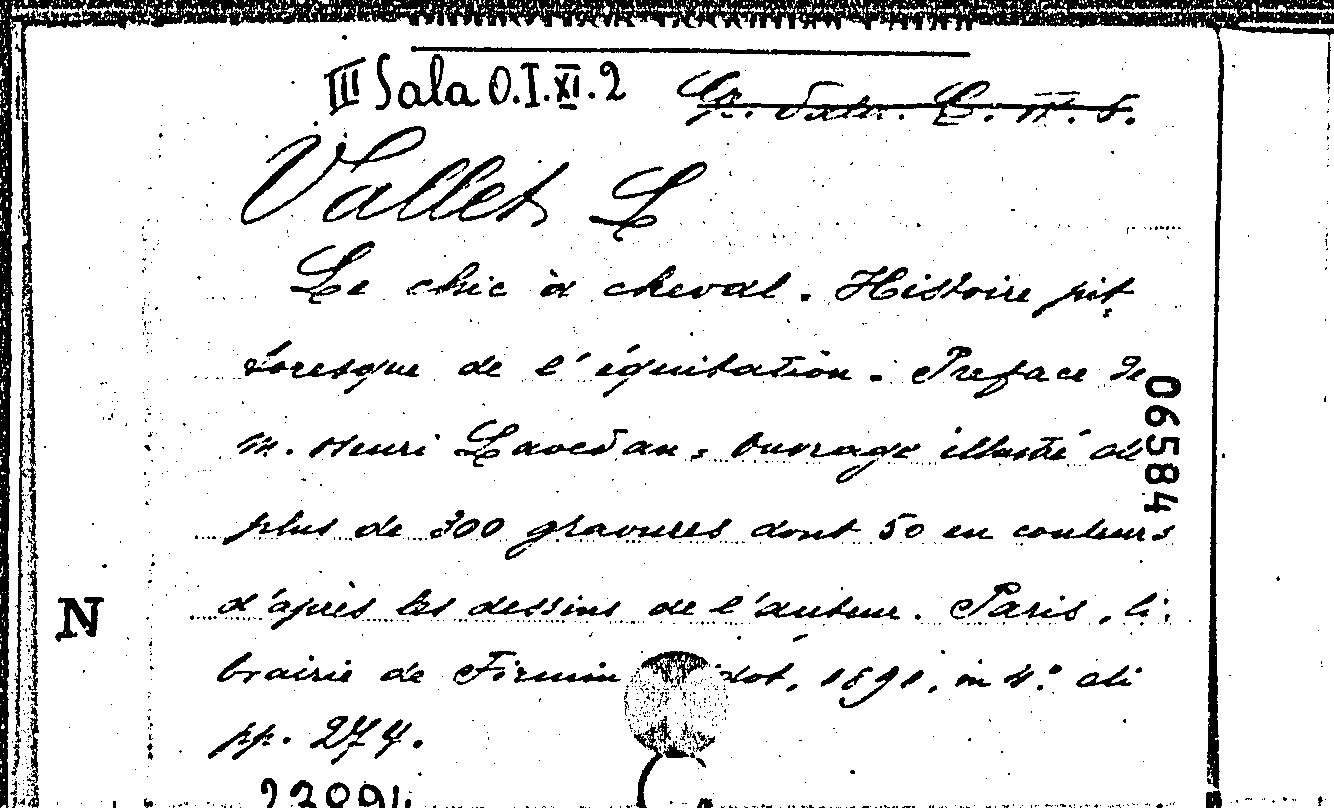 III Sala O.I.XI.2
Vallet L
Le chic à cheval. Histoire pit
toresque de l'équitation. Preface de
m. Henri Lavedan, Ouvrage illustré de
plus de 300 gravures dont 50 en couleurs
d'après les dessins de l'auteur. Paris, li:
brairie de Firmin dot, 1891, in 4.° di
pp. 274.
06584
N